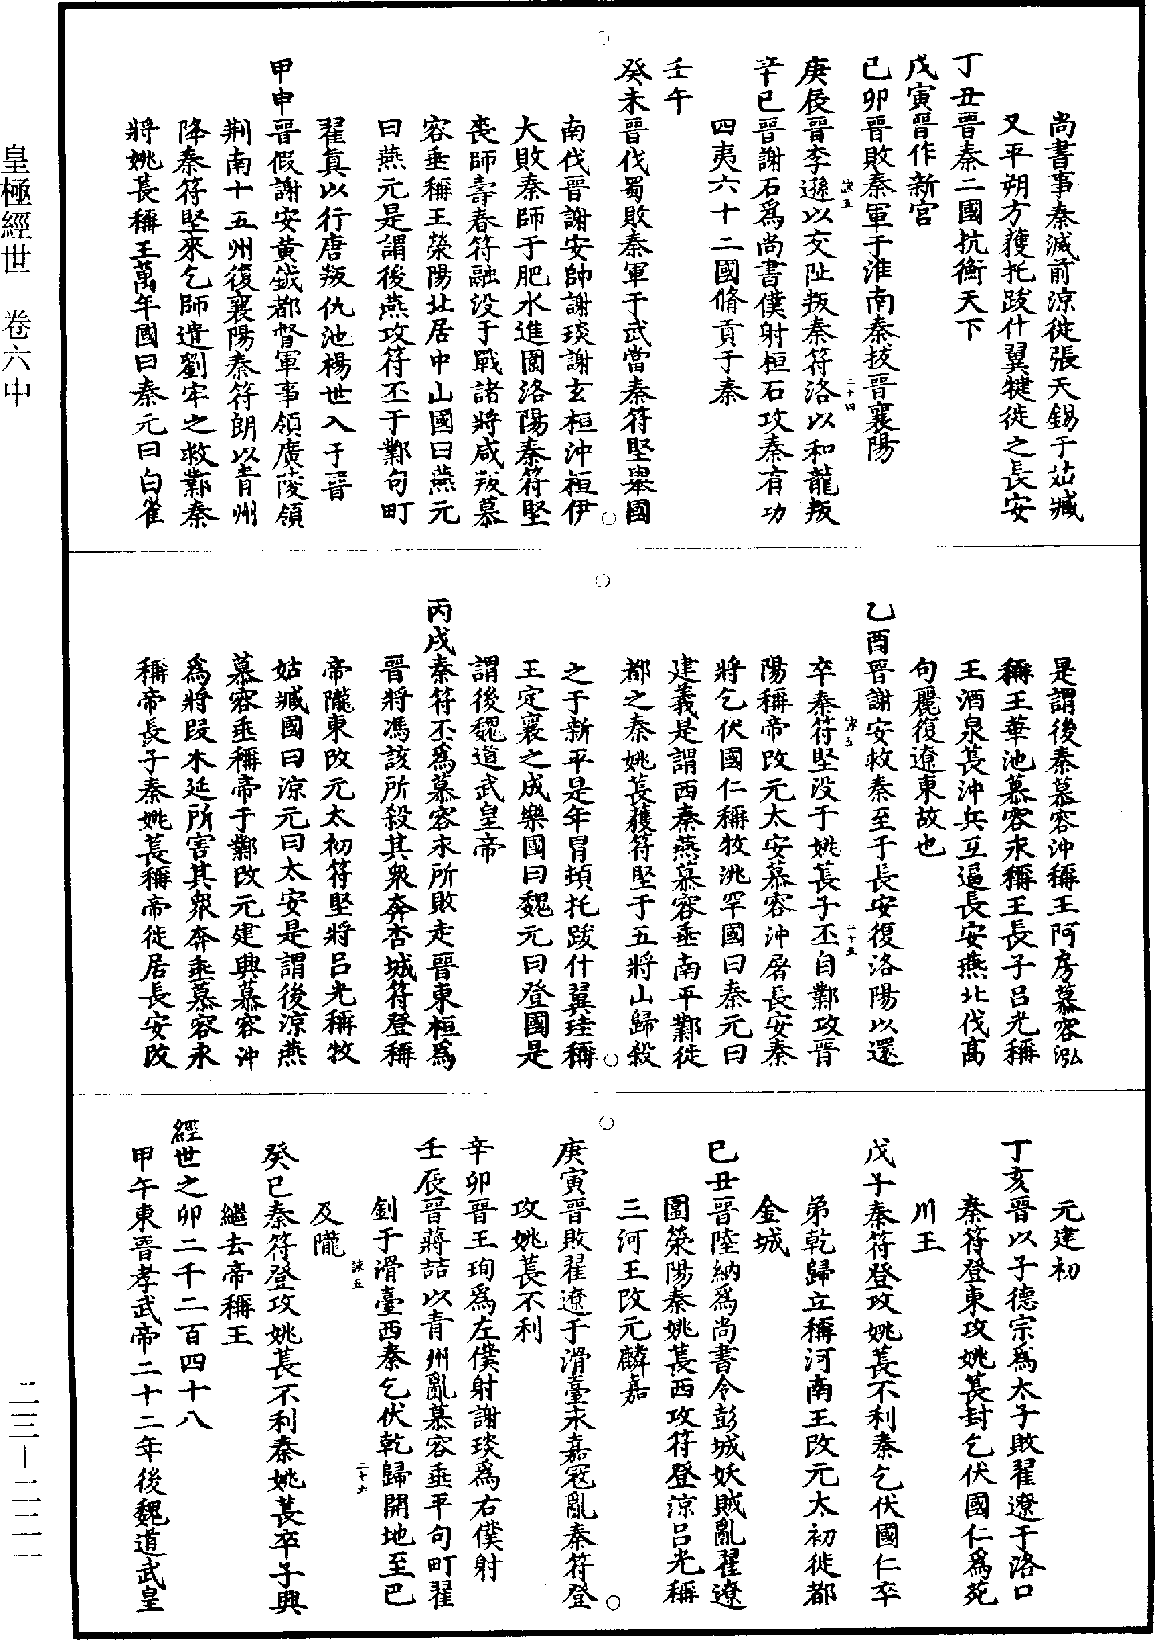 尚書事秦滅前涼徙張天錫于姑臧
又平朔方獲托跋什翼犍徙之長安
丁丑晉秦二國抗衡天下
戊寅晉作新宮
己卯晉敗秦軍于淮南秦拔晉襄陽
庚辰晉李遜以交阯叛秦符洛以和龍叛
辛巳晉謝石爲尚書僕射桓石攻秦有功
四夷六十二國脩貢于秦
壬午
癸未晉伐蜀敗秦軍于武當秦符堅舉國
南伐晉謝安帥謝琰謝玄桓沖桓伊
大敗秦師于肥水進圍洛陽秦符堅
喪師壽春符融没于戰諸將咸叛慕
容垂稱王滎陽北居中山國曰燕元
曰燕元是謂後燕攻符丕于鄴句町
翟真以行唐叛仇池楊世入于晉
甲申晉假謝安黃鉞都督軍事領廣陵領
荆南十五州復襄陽秦符朗以青州
降秦符堅來乞師遣劉牢之救鄴秦
將姚萇稱王萬年國曰秦元曰白雀
是謂後秦慕容沖稱王阿房慕容泓
稱王華池慕容永稱王長子吕光稱
王酒泉萇沖兵互逼長安燕北伐高
句麗復遼東故也
乙酉晉謝安救秦至于長安復洛陽以還
卒秦符堅没于姚萇子丕自鄴攻晉
陽稱帝改元太安慕容沖屠長安秦
將乞伏國仁稱牧洮罕國曰秦元曰
建義是謂西秦燕慕容垂南平鄴徙
都之秦姚萇獲符堅于五將山歸殺
之于新平是年冒頓托跋什翼珪稱
王定襄之成樂國曰魏元曰登國是
謂後魏道武皇帝
丙戌秦符丕爲慕容永所敗走晉東桓爲
晉將馮該所殺其衆奔杏城符登稱
帝隴東改元太初符堅將吕光稱牧
姑臧國曰涼元曰太安是謂後涼燕
慕容垂稱帝于鄴改元建興慕容沖
爲將段木延所害其衆奔垂慕容永
稱帝長子秦姚萇稱帝徙居長安改
元建初
丁亥晉以子德宗爲太子敗翟遼于洛口
秦符登東攻姚萇封乞伏國仁爲苑
川王
戊子秦符登攻姚萇不利秦乞伏國仁卒
弟乾歸立稱河南王改元太初徙都
金城
己丑晉陸納爲尚書令彭城妖賊亂翟遼
圍滎陽秦姚萇西攻符登涼吕光稱
三河王改元麟嘉
庚寅晉敗翟遼于滑臺永嘉冦亂秦符登
攻姚萇不利
辛卯晉王珣爲左僕射謝琰爲右僕射
壬辰晉蔣詰以青州亂慕容垂平句町翟
釗于滑臺西秦乞伏乾歸開地至巴
及隴
癸巳秦符登攻姚萇不利秦姚萇卒子興
繼去帝稱王
經世之卯二千二百四十八
甲午東晉孝武帝二十二年後魏道武皇
皇極經世 卷六中
二三—二二一